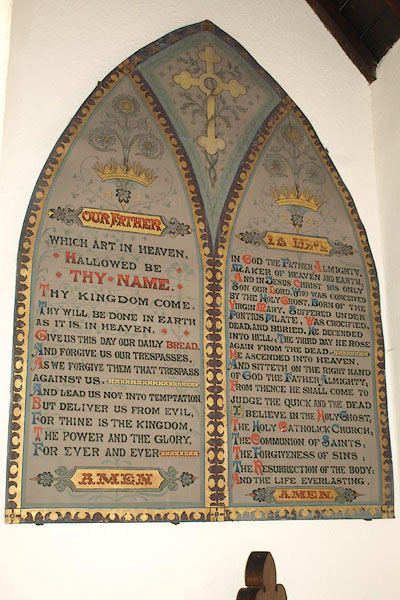 OUR FATHER
WHICH ART IN HEAVEN,
HALLOWED BE
THY NAME.
THY KINGDOM COME.
THY WILL BE DONE IN EARTH
AS IT IS IN HEAVEN.
GIVE US THIS DAY OUR DAILY BREAD.
AND FORGIVE US OUR TRESPASSES,
AS WE FORGIVE THEM THAT TRESPASS
AGAINST US.
AND LEAD US NOT INTO TEMPTATION
BUT DELIVER US FROM EVIL,
FOR THINE IS THE KINGDOM,
THE POWER AND THE GLORY,
FOR EVER AND EVER
AMEN
IN GOD THE FATHER ALMIGHTY,
MAKER OF HEAVEN AND EARTH,
AND IN JESUS CHRIST HIS ONLY
SON OUR LORD, WHO WAS CONCEIVED
BY THE HOLY GHOST, BORN OF THE
VIRGIN MARY, SUFFERED UNDER
PONTIUS PILATE, WAS CRUCIFIED,
DEAD, AND BURIED, HE DECENDED
INTO HELL, THE THIRD DAY HE ROSE
AGAIN FROM THE DEAD.
HE ASCENDED INTO HEAVEN,
AND SITTETH ON THE RIGHT HAND
OF GOD THE FATHER ALMIGHTY,
FROM THENCE HE SHALL COME TO
JUDGE THE QUICK AND THE DEAD
I BELIEVE IN THE HOLY GHOST,
THE HOLY CATHOLICK CHURCH,
THE COMMUNION OF SAINTS,
THE FORGIVENESS OF SINS,
THE RESURRECTION OF THE BODY;
AND THE LIFE EVERLASTING.
AMEN.